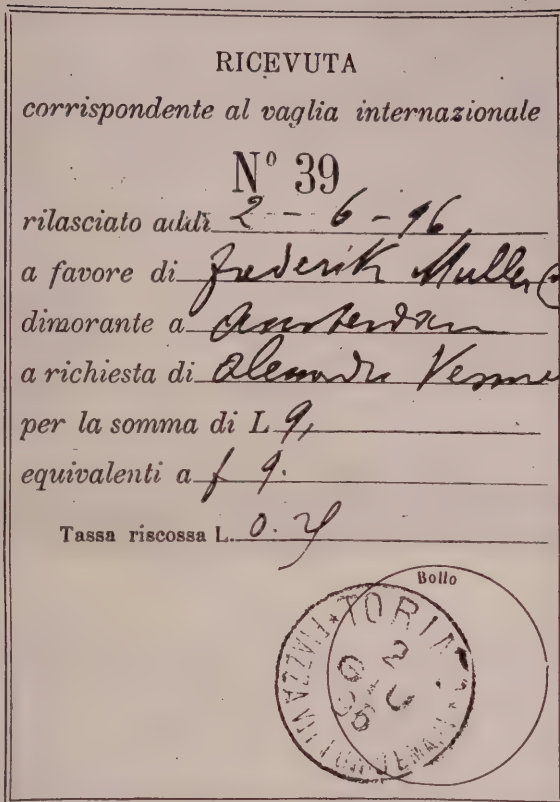 RICEVUTA
corrispondente al vaglia internazionale
N° 39
rilasciato addì 2 - 6 - 96
a favore di Frederik Muller
dimorante a Amsterdam
a richiesta di
per la somma di L 9,
equivalenti a f 9.
Tassa riscossa L. 0.25
Bollo
TORINO
2
GIU
96